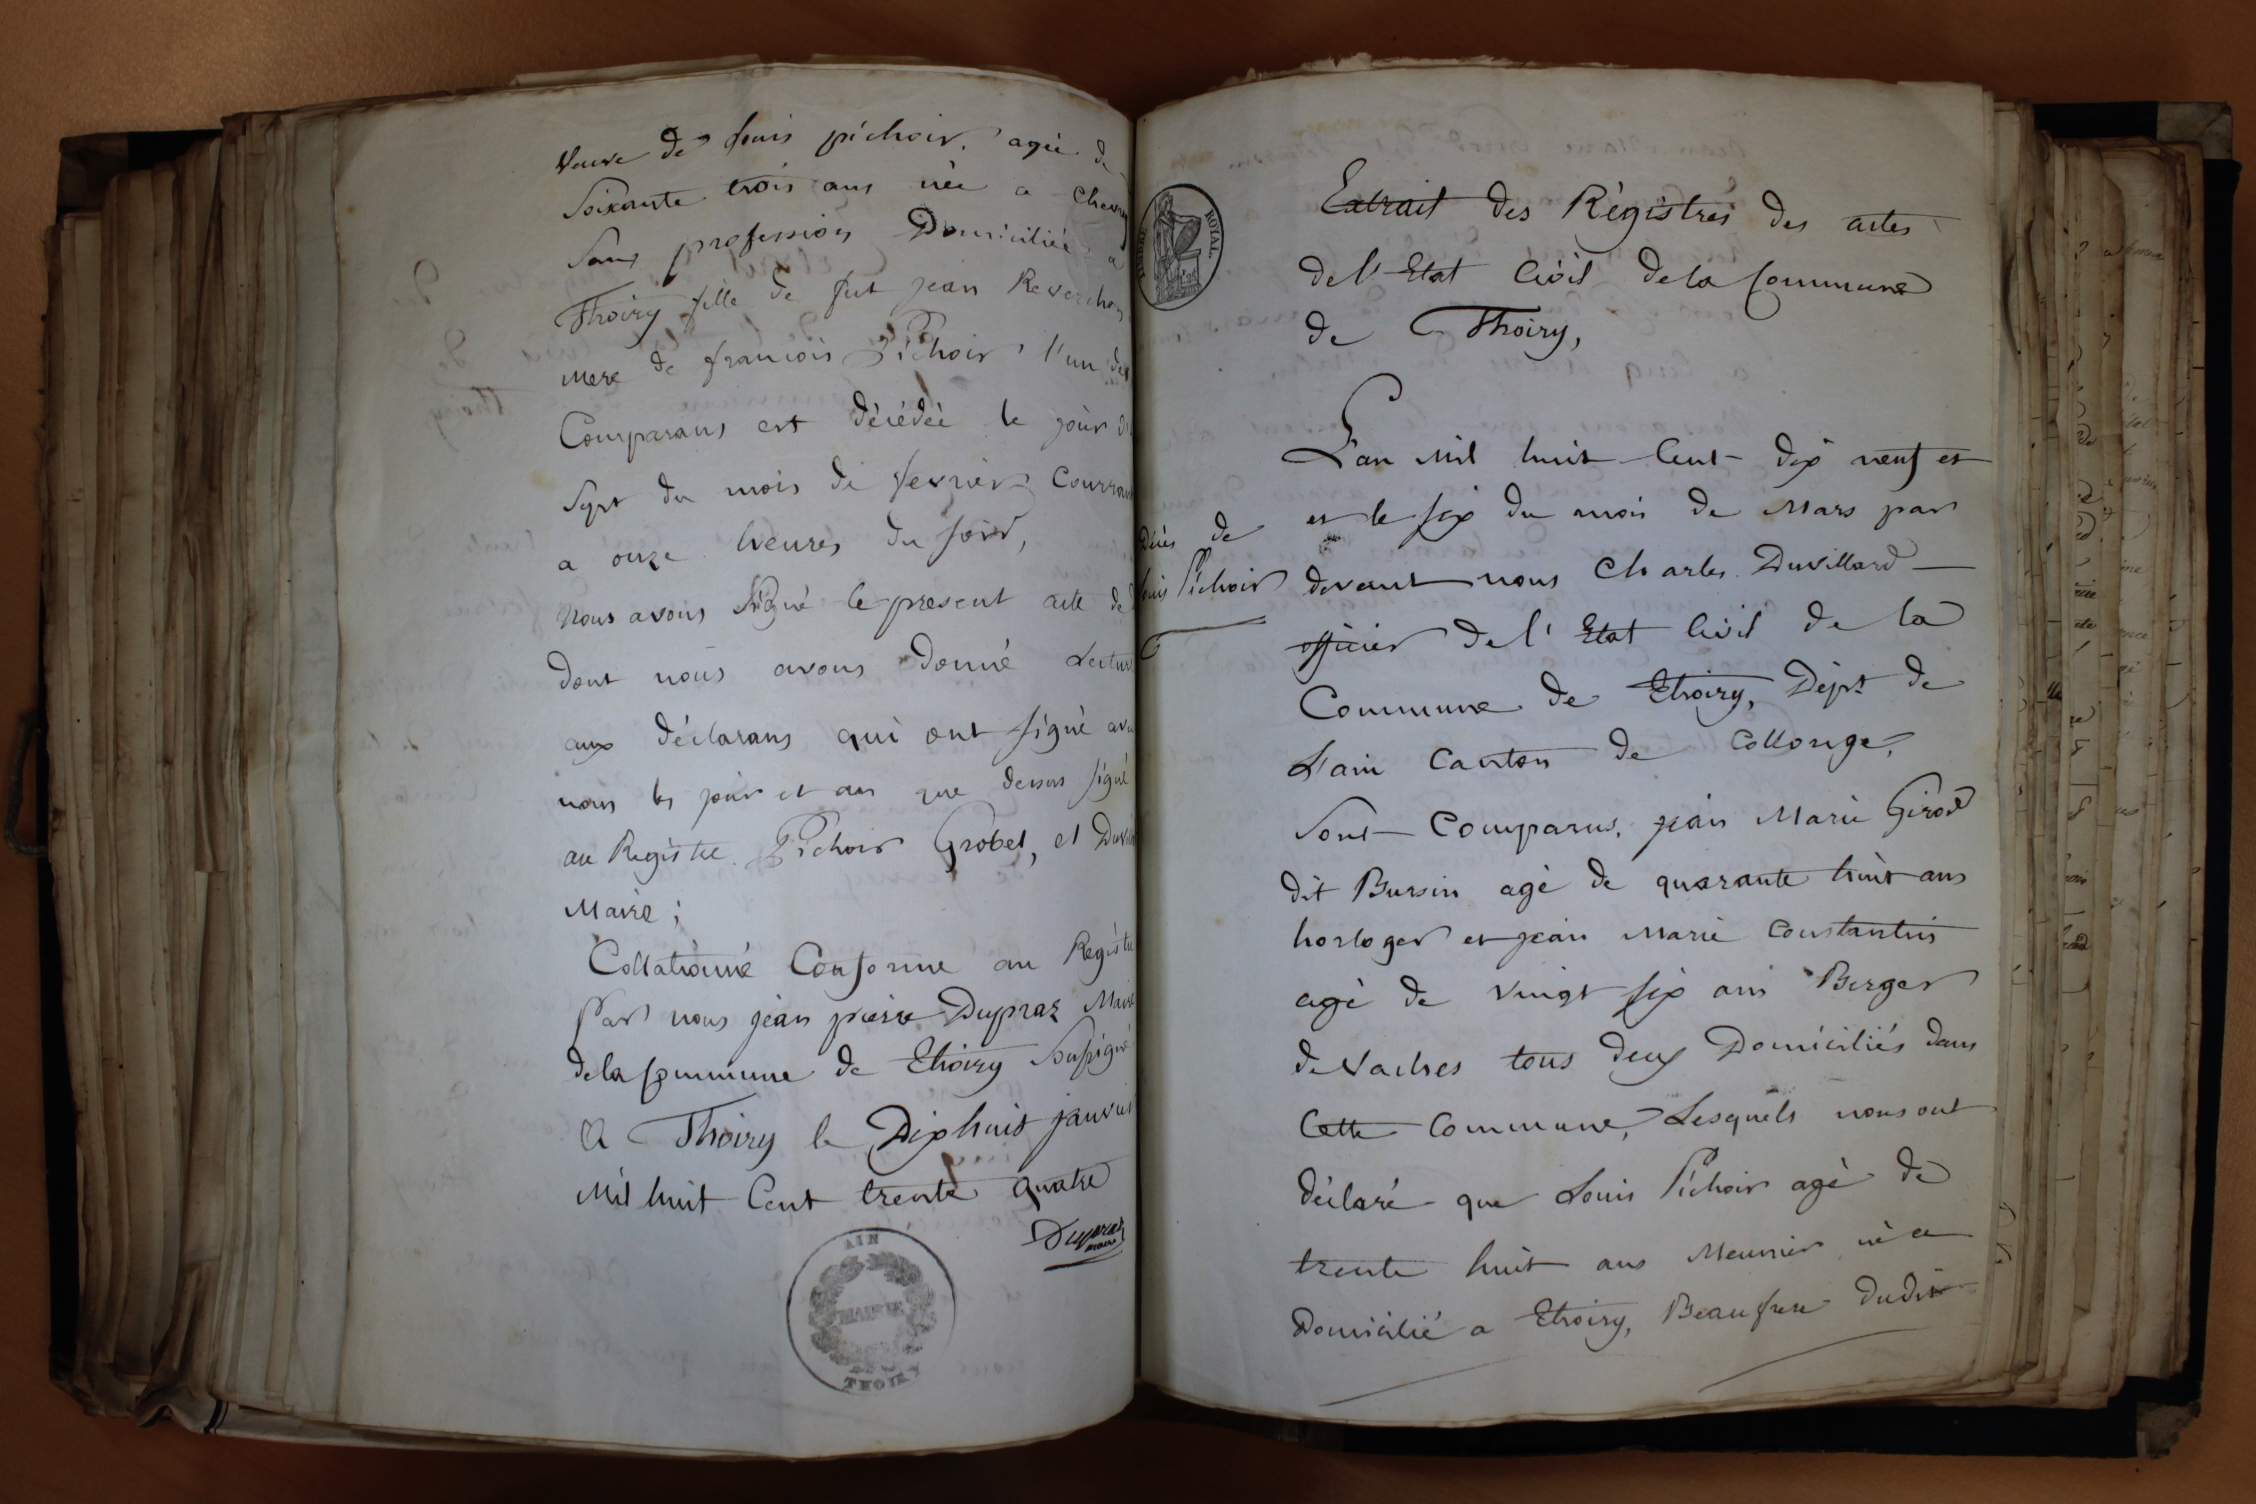 Veuve de Louis pichoir, agée de
Soixante trois ans née a Chevry
Sans profession Domiciliée a
Thoiry fille de fut jean Reverchon
Mere de francois Pichoir l'un des
Comparans est décédée le jour
Sept du mois de fevrier Courrant
a onze heures du soir,
Nous avons Signé le present acte de
dont nous avons donné Lecture
aux déclarans qui ont signé avec
nous les jour et an que dessus signé
au Registre Pichoir Grobet, et
Maire;
Collationné Conforme au Registre
Par nous jean pierre Dupraz Maire
de la Commune de Thoiry Soussigné
A Thoiry le Dix huit janvier
Mil huit Cent trente quatre
Dupraz
maire
AIN
MAIRIE
THOIRY
TIMBRE ROYAL
Extrait des Régistres des actes
de l'Etat Civil de la Commune
de Thoiry,
L'an Mil huit Cent dix neuf et
et le six du mois de Mars par
Décès de
Louis Pichoir
devant nous Charles Duvillard
officier de l'Etat Civil de la
Commune de Thoiry, Dépt de
L'ain Canton de Collonge,
Sont Comparus, jean Marie Girod
dit Bursin agé de quarante huit ans
horloger et jean Marie Constantin
agé de vingt six ans Berger
de Vaches tous deux Domiciliés dans
Cette Commune, Lesquels nous ont
déclaré que Louis Pichoir agé de
trente huit ans Meunier né a
Domicilié a Thoiry, Beaufrere dudit